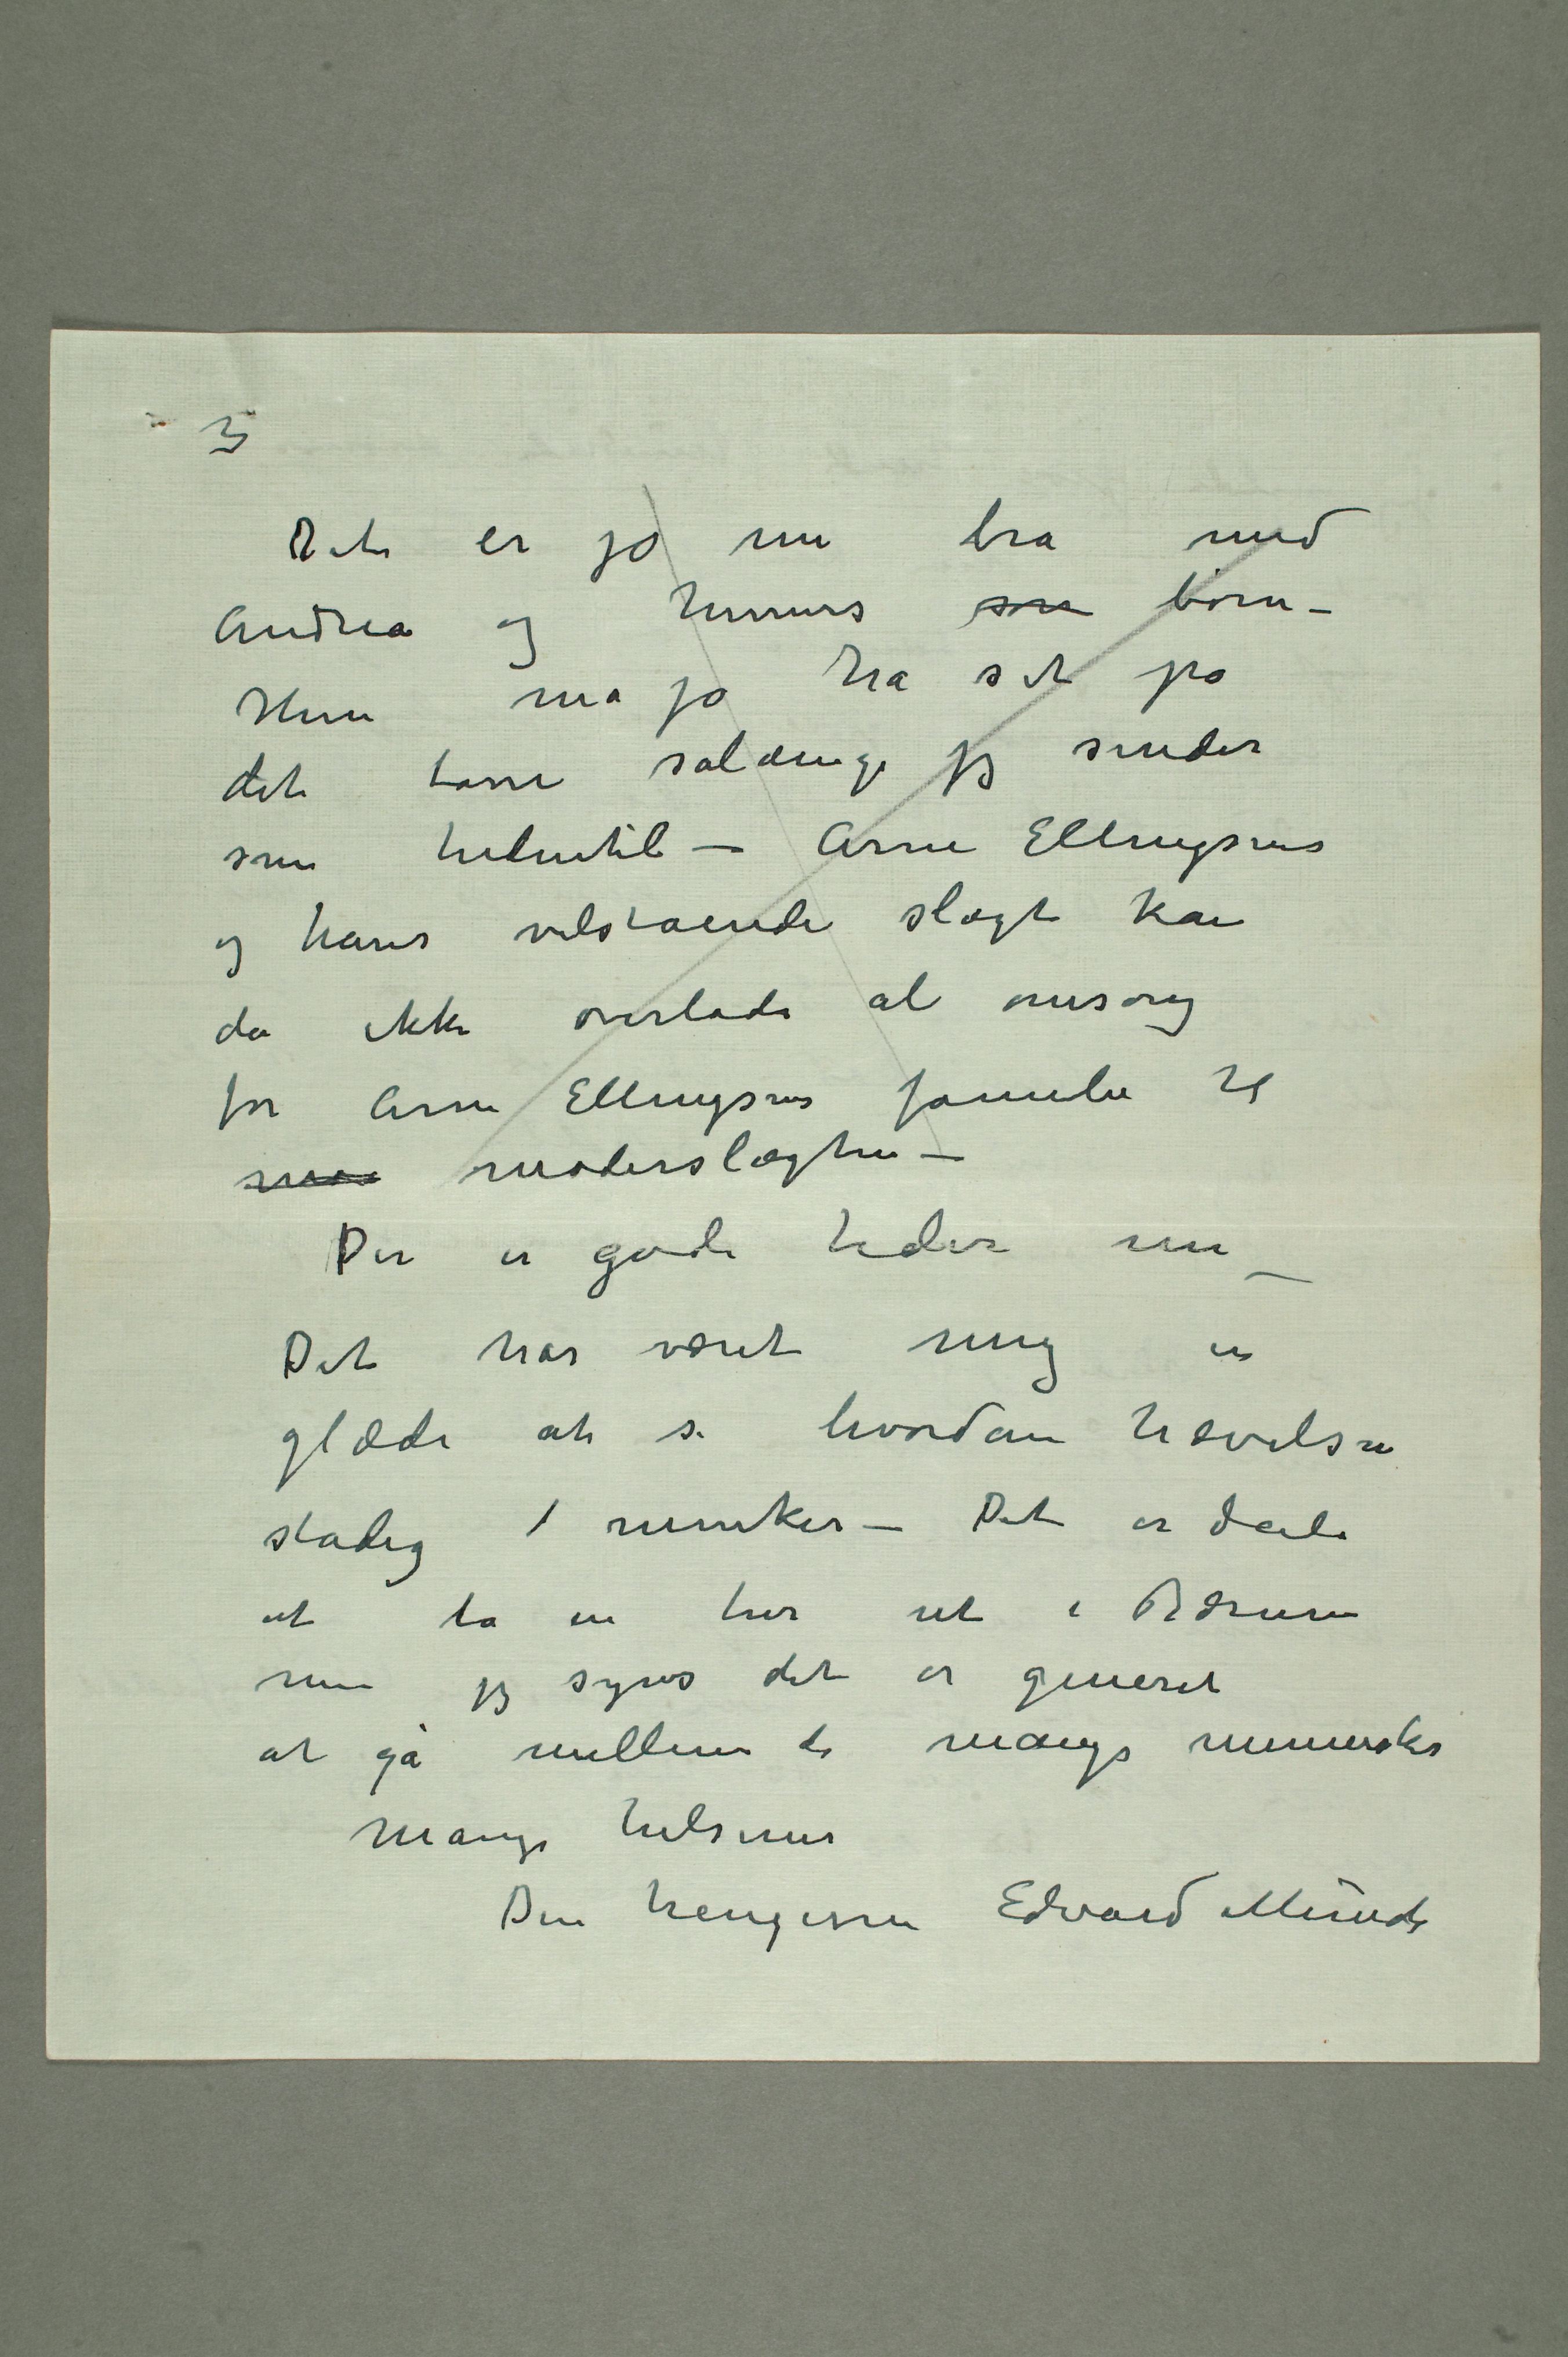 3
Det er jo nu bra med
Andrea og hennes som børn –
Hun må jo ha set på
det tørre sålænge jeg sender
som hidentil – Arne Ellingsens
og hans velstående slægt kan
da ikke overlade al omsorg
for Arne Ellingsens familie til
moderslægten –
Der er gode tider nu –
Det har været mig en
glæde at se hvordan hævelsen
stadig minker – Det er deili
at ta en tur ut i Bærum
men jeg synes det er generet
at gå mellem de mange mennesker
Mange hilsener
Din hengivne Edvard Munch